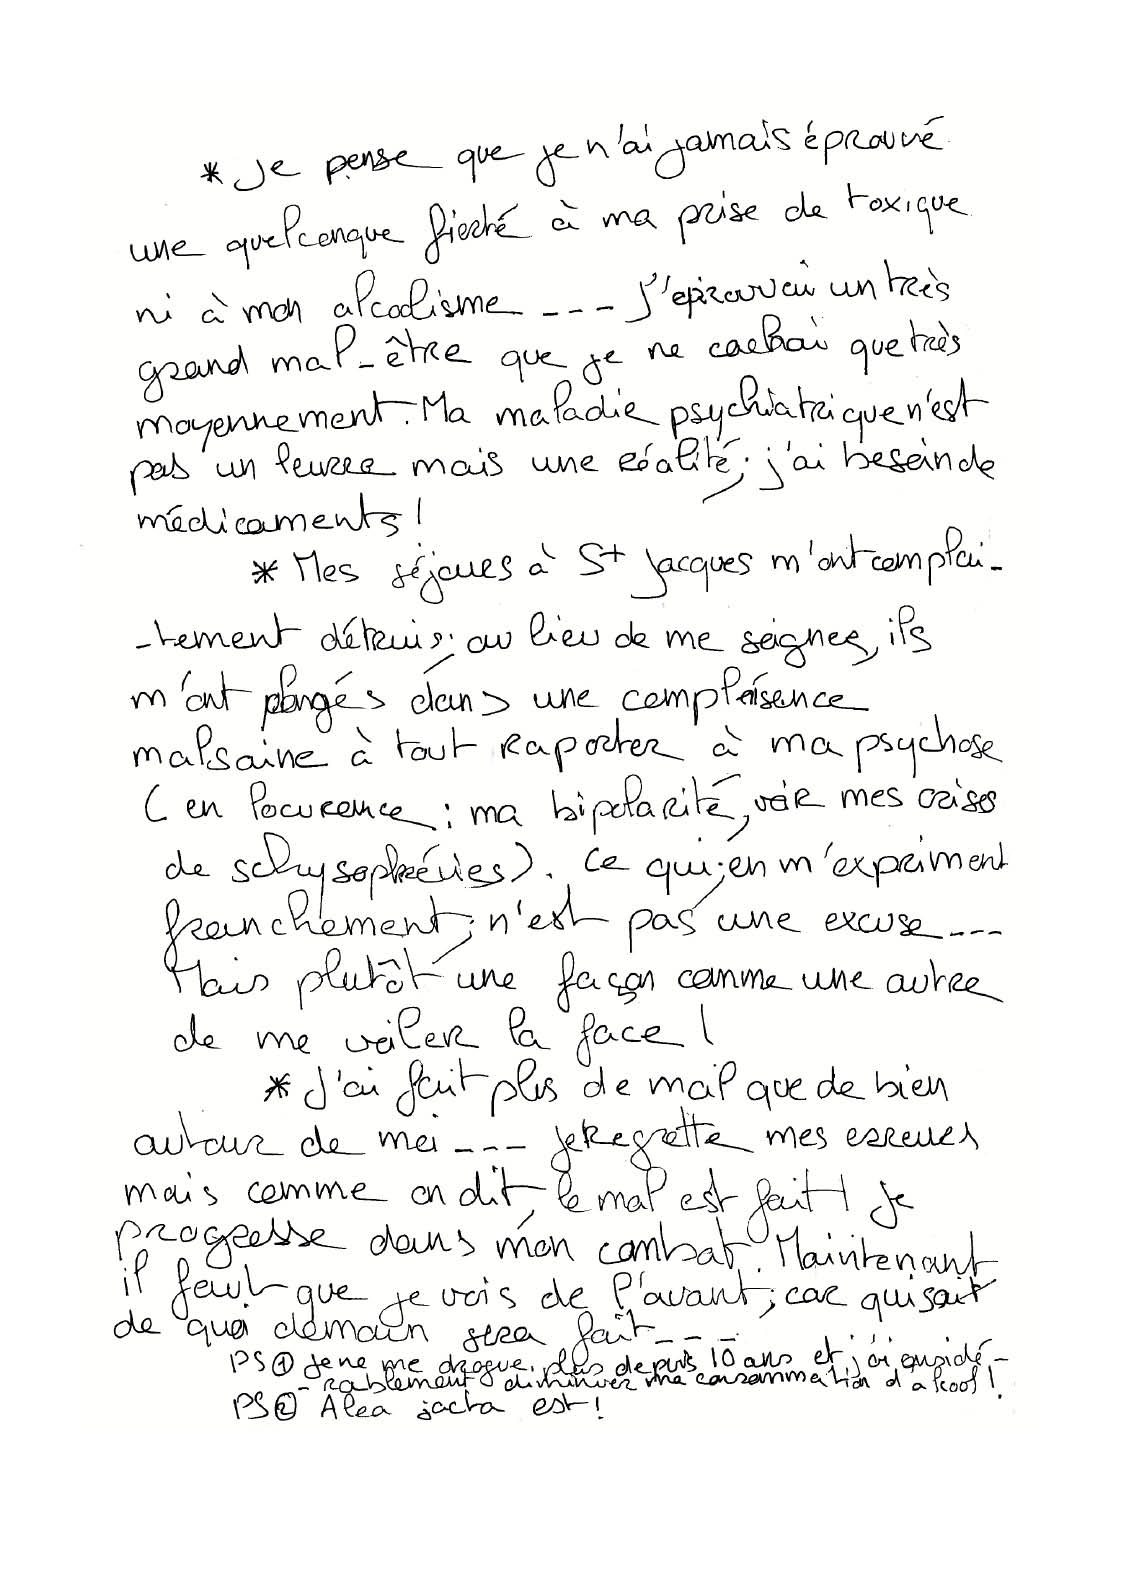 * Je pense que je n'ai jamais éprouvé
une quelconque fierté à ma prise de toxique
ni à mon alcoolisme ---- J'éprouvai un très
grand mal-être que je ne cachai que très
moyennement. Ma maladie psychiatrique n'est
pas un leurre mais une réalité; j'ai besoin de
médicaments !
* Mes séjours à St Jacques m'ont complai-
-tement détruis; au lieu de me soigner, ils
m'ont plongés dans une complaisence
malsaine à tout raporter à ma psychose
(en locurence : ma bipolarité, voir mes crises
de schysophrénies). Ce qui; en m'expriment
franchement; n'est pas une excuse ---
Mais plutôt une façon comme une autre
de me voiler la face !
* J'ai fait plus de mal que de bien
autour de moi --- je regrette mes erreurs
mais comme on dit, le mal est fait ! je
progresse dans mon combat. Maintenant
il faut que je vois de l'avant; car qui sait
de quoi demain sera fait ----
PS ① Je ne me drogue plus depuis 10 ans et j'ai considé-
-rablement diminuer ma consommation d'alcool !
PS ② Alea jacta est !